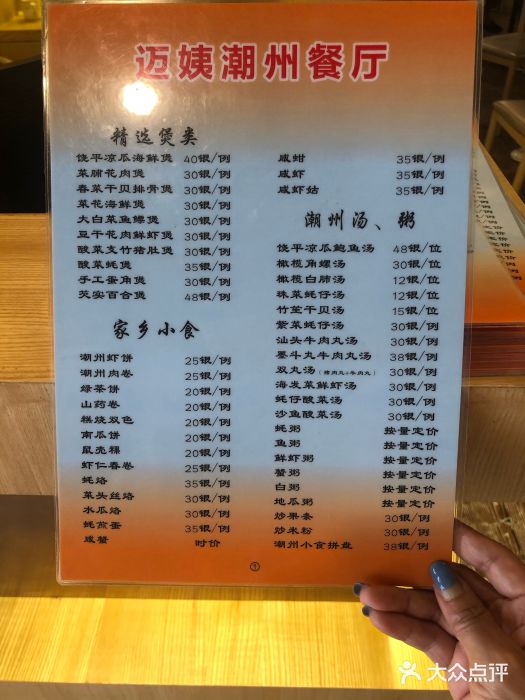 迈姨潮州餐厅
精选煲类
饶平凉瓜海鲜煲 40银/例
菜脯花肉煲 30银/例
春菜干贝排骨煲 30银/例
菜花海鲜煲 30银/例
大白菜鱼鳔煲 30银/例
豆干花肉鲜虾煲 30银/例
酸菜支竹猪肚煲 30银/例
酸菜蚝煲 35银/例
手工蛋角煲 30银/例
芡实百合煲 48银/例
家乡小食
潮州虾饼 25银/例
潮州肉卷 25银/例
绿茶饼 20银/例
山药卷 20银/例
糕烧双色 20银/例
南瓜饼 20银/例
鼠壳粿 20银/例
虾仁春卷 25银/例
蚝烙 35银/例
菜头丝烙 30银/例
水瓜烙 30银/例
蚝煎蛋 35银/例
咸蟹 时价
咸蚶 35银/例
咸虾 35银/例
咸虾姑 35银/例
潮州汤、粥
饶平凉瓜鲍鱼汤 48银/位
橄榄角螺汤 30银/位
橄榄白肺汤 12银/位
珠菜蚝仔汤 12银/位
竹笙干贝汤 15银/位
紫菜蚝仔汤 30银/例
汕头牛肉丸汤 30银/例
墨斗丸牛肉丸汤 38银/例
双丸汤(猪肉丸+牛肉丸) 30银/例
海发菜鲜虾汤 30银/例
蚝仔酸菜汤 30银/例
沙鱼酸菜汤 30银/例
蚝粥 按量定价
鱼粥 按量定价
鲜虾粥 按量定价
蟹粥 按量定价
白粥 按量定价
地瓜粥 按量定价
炒果条 30银/例
炒米粉 30银/例
潮州小食拼盘 38银/例
①
大众点评